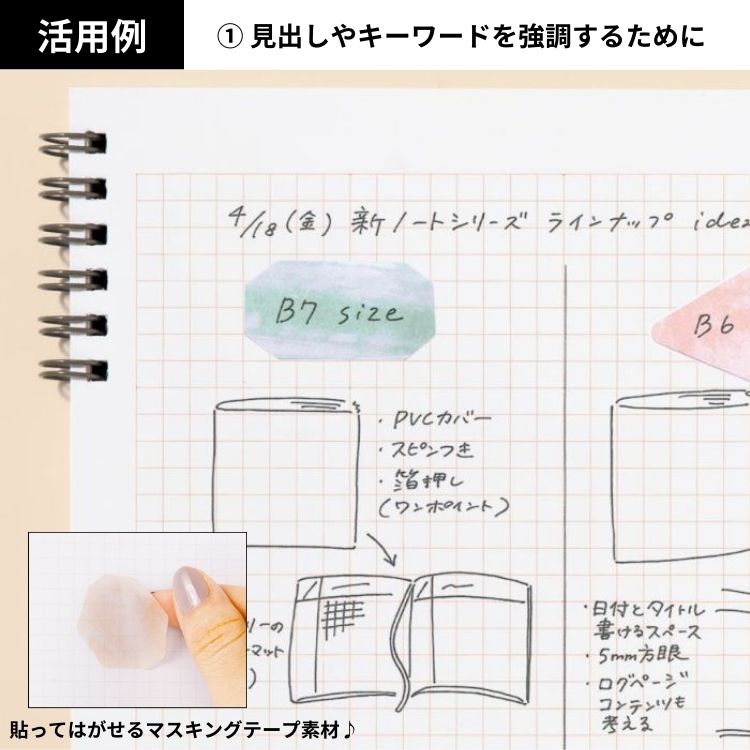 活用例
① 見出しやキーワードを強調するために
4/18(金) 新ノートシリーズ ラインナップ idea
B7 size
B6
・PVCカバー
・スピンつき
・箔押し
(ワンポイント)
・日付とタイトル
書けるスペース
・5mm方眼
・ログページ
コンテンツも
考える
リーの
ーマット
)
貼ってはがせるマスキングテープ素材♪